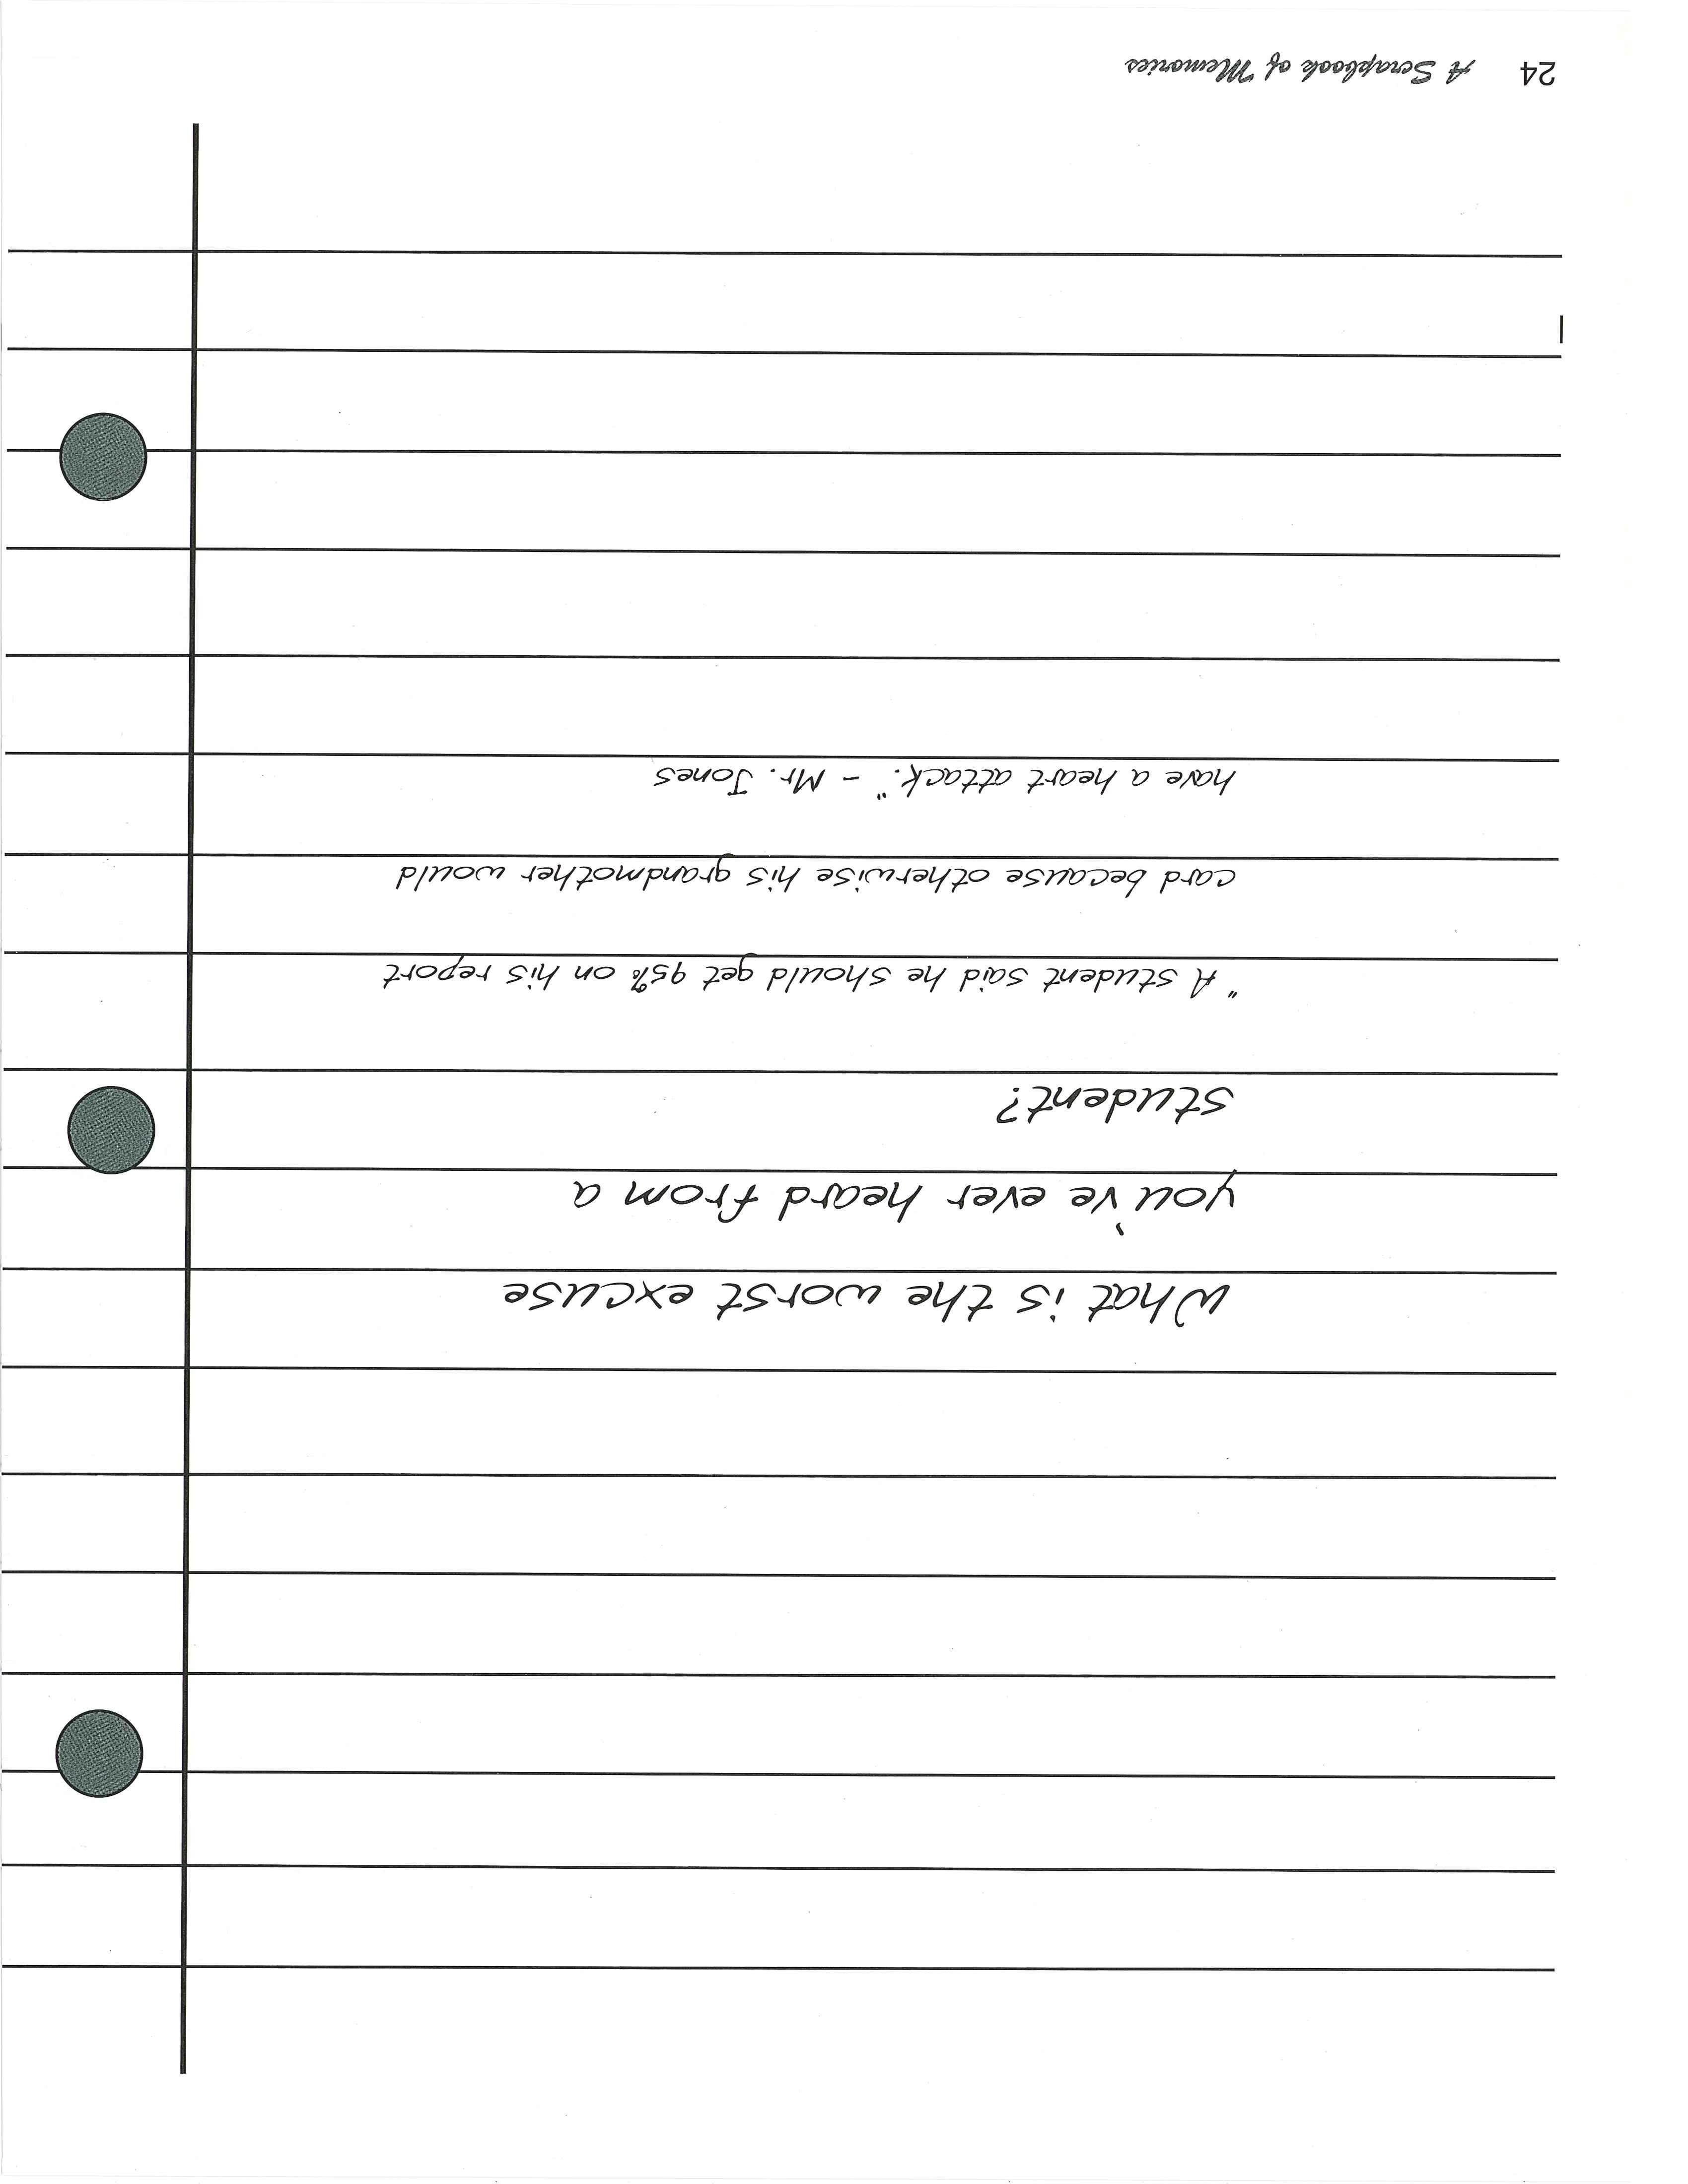 What is the worst excuse
you've ever heard from a
student?
"A student said he should get 95% on his report
card because otherwise his grandmother would
have a heart attack." - Mr. Jones
24 A Scrapbook of Memories